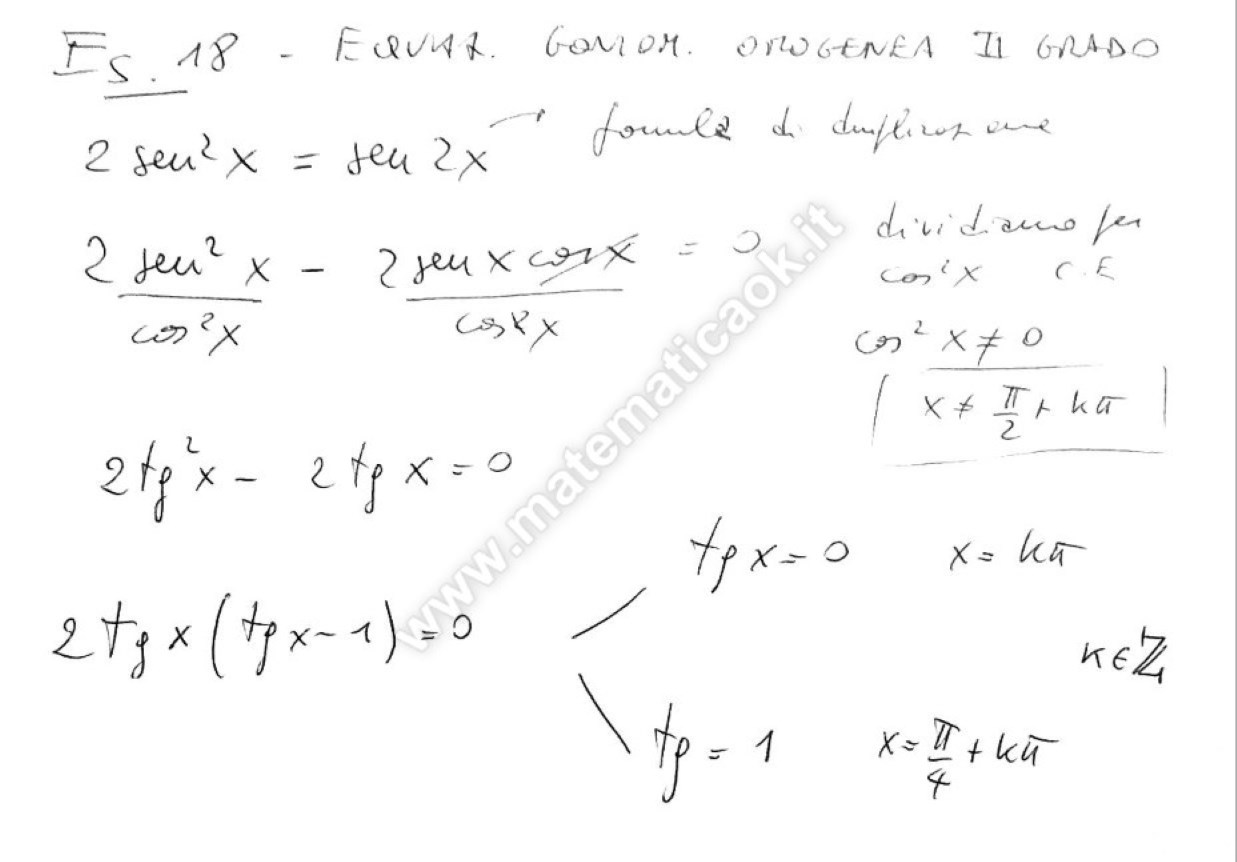 Es. 18 - EQUAZ. GONIOM. OMOGENEA II GRADO
2 sen²x = sen 2x → formula di duplicazione
2 sen²x / cos²x - 2 sen x cos x / cos²x = 0
dividiamo per
cos²x C.E
cos²x ≠ 0
x ≠ π/2 + kπ
2tg²x - 2tg x = 0
tg x = 0 x = kπ
2tg x (tg x - 1) = 0
k ∈ ℤ
tg = 1 x = π/4 + kπ
www.matematicaok.it